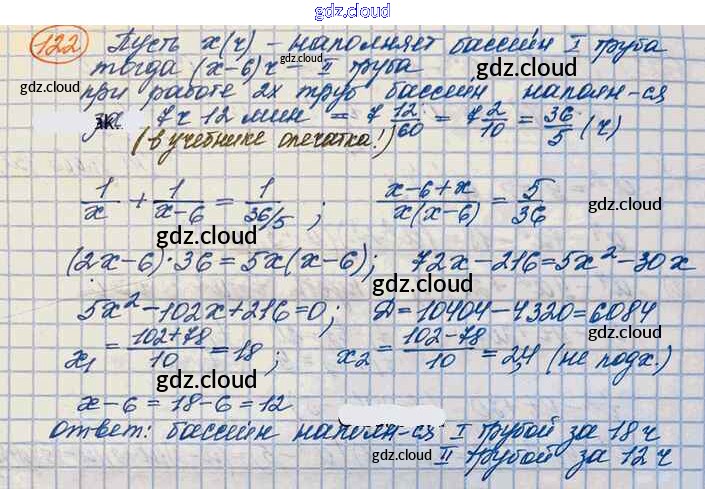 gdz.cloud
122 Пусть x(ч) – наполняет бассейн I труба
gdz.cloud
тогда (x-6)ч – II труба
gdz.cloud
при работе 2х труб бассейн наполн-ся
gdz.cloud gdz.cloud
7ч 12 мин = 7 12/60 = 7 2/10 = 36/5 (ч)
(в учебнике опечатка!)
gdz.cloud
1/x + 1/(x-6) = 1/(36/5); (x-6+x)/(x(x-6)) = 5/36
gdz.cloud gdz.cloud
(2x-6)·36 = 5x(x-6); 72x-216=5x²-30x
gdz.cloud
5x²-102x+216=0; Д=10404-4320=6084
gdz.cloud gdz.cloud
x₁ = (102+78)/10 = 18; x₂ = (102-78)/10 = 2,4 (не подх.)
gdz.cloud gdz.cloud
x-6 = 18-6 = 12
gdz.cloud
ответ: бассейн наполн-ся I трубой за 18ч
gdz.cloud gdz.cloud
II трубой за 12ч
gdz.cloud